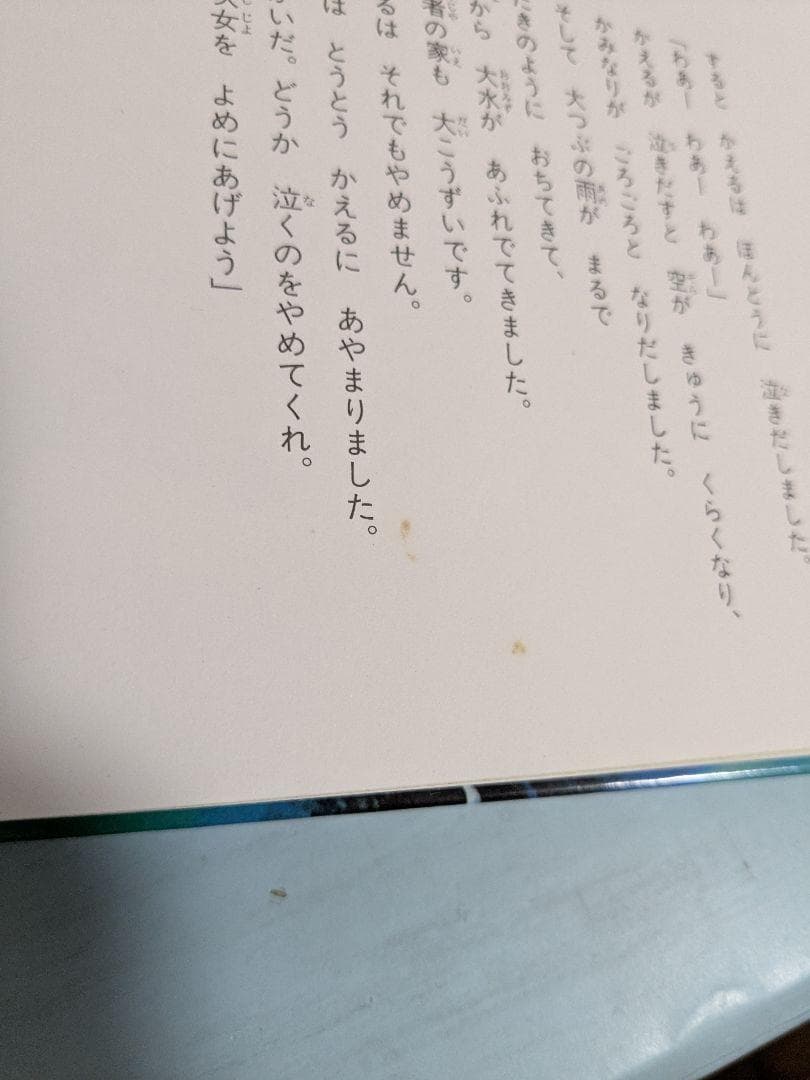 すると かえるは ほんとうに 泣きだしました。
「わあー わあー わあー」
かえるが 泣きだすと 空が きゅうに くらくなり、
かみなりが ごろごろと なりだしました。
そして 大つぶの雨が まるで
きのように おちてきて、
から 大水が あふれでてきました。
者の家も 大こうずいです。
るは それでもやめません。
は とうとう かえるに あやまりました。
いだ。どうか 泣くのをやめてくれ。
女を よめにあげよう」